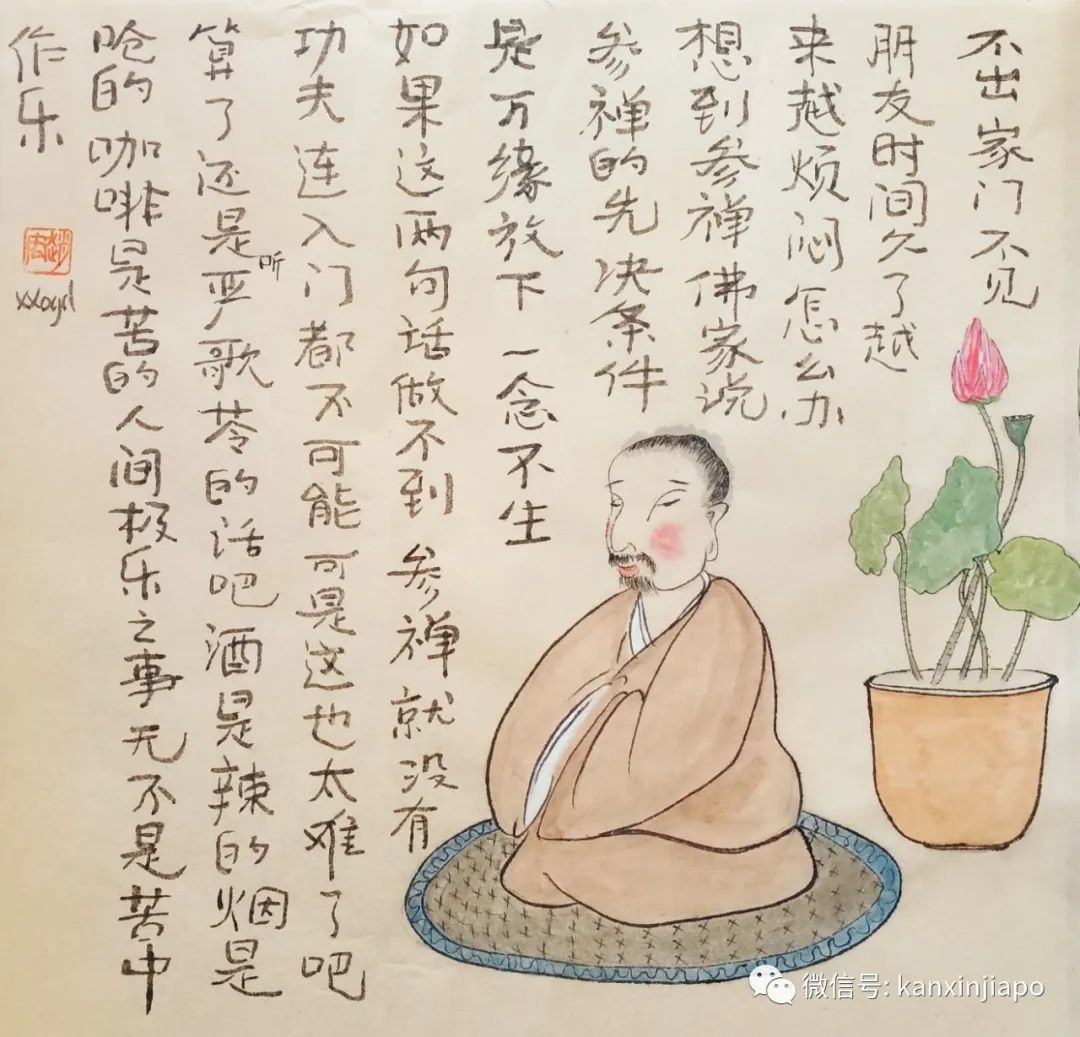 不出家门不见
朋友时间久了越
来越烦闷怎么办
想到参禅佛家说
参禅的先决条件
是万缘放下一念不生
如果这两句话做不到 参禅就没有
功夫连入门都不可能可是这也太难了吧
算了还是听严歌苓的话吧酒是辣的烟是
呛的咖啡是苦的人间极乐之事无不是苦中
作乐
微信号: kanxinjiapo